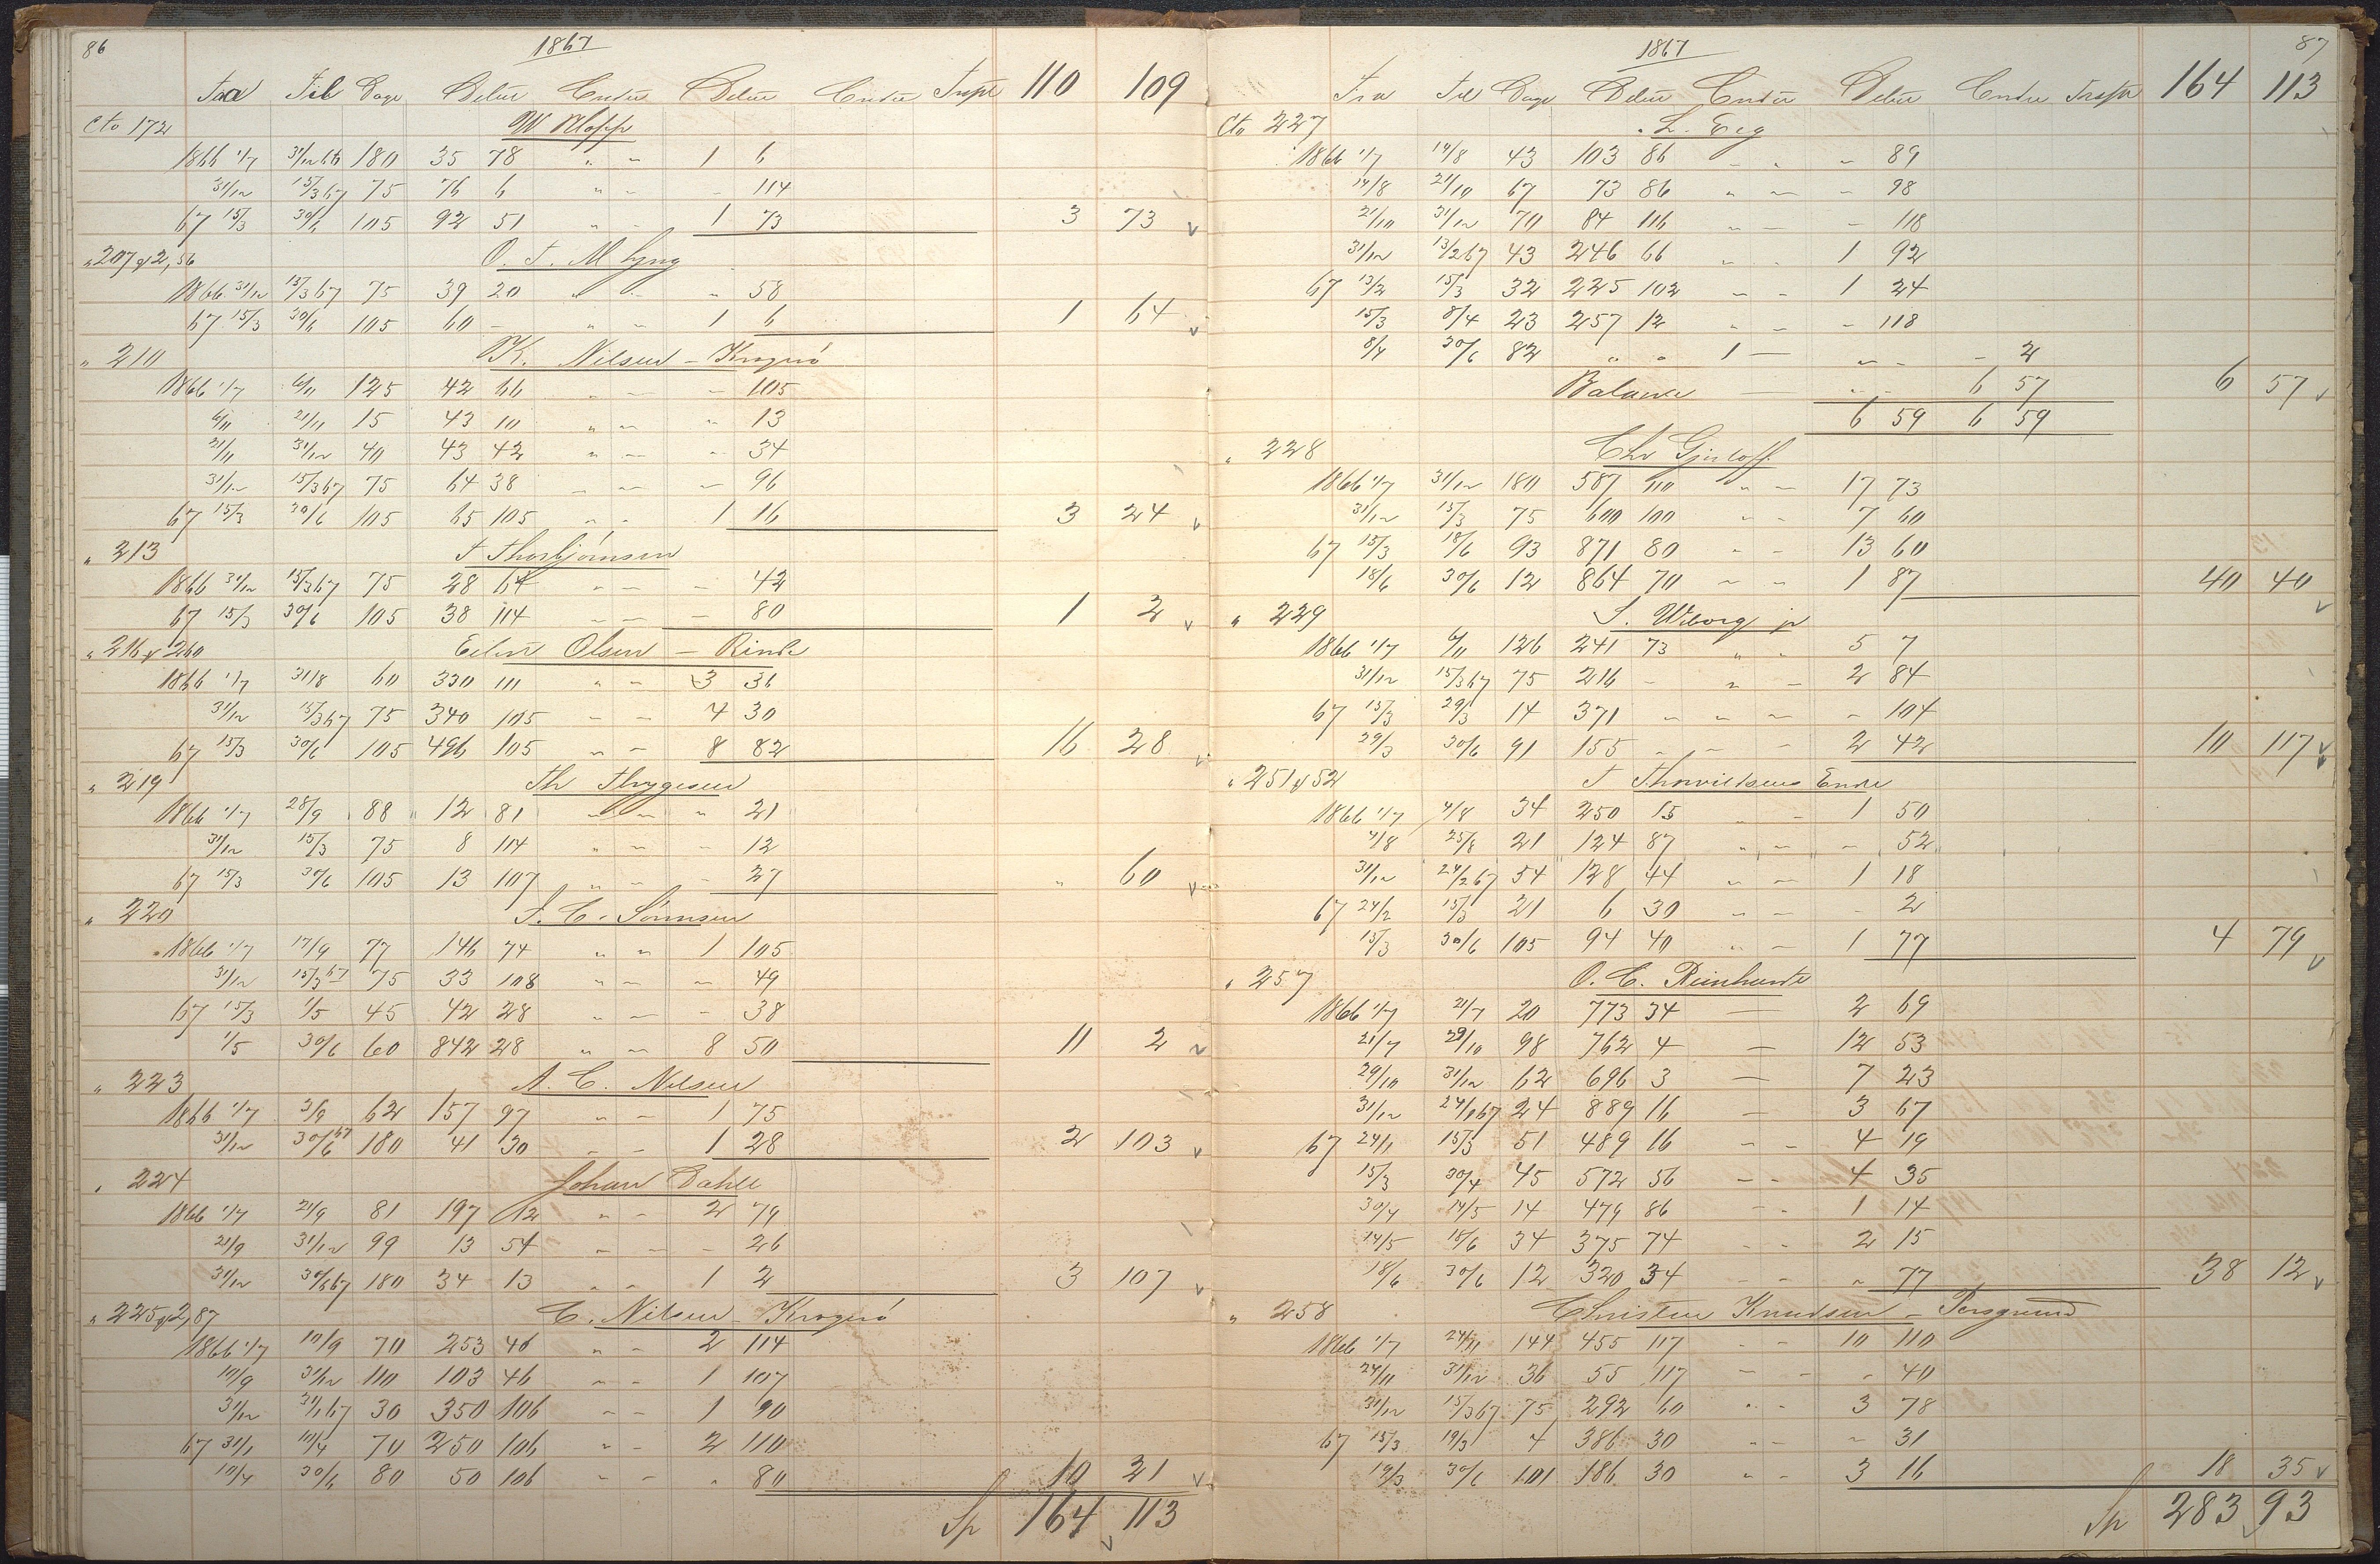 86
1867
Fra Til Dage Debet Credit Debet Credit Trspt 110 109
Cto 172 W Klopp
1866 1/7 31/12 66 180 35 78 " " 1 6
31/12 15/3 67 75 76 6 " " - 114
67 15/3 30/6 105 92 51 " " 1 73 3 73
" 207 & 2,56 O. T. M Lyng
1866 31/12 15/3 67 75 39 20 " - " 58
67 15/3 30/6 105 60 - " " 1 6 1 64
" 210 K. Nilsen - Kragerö
1866 1/7 6/11 125 42 66 " - - 105
6/11 21/11 15 43 10 " - " 13
21/11 31/12 40 43 42 " - - 34
31/12 15/3 67 75 64 38 - - - 96
67 15/3 30/6 105 65 105 " " 1 16 3 24
" 213 T Thorbjörnsen
1866 31/12 15/3 67 75 28 64 " - - 42
67 15/3 30/6 105 38 114 - - - 80 1 2
" 216 & 260 Olsen -
1866 1/7 31/8 60 330 111 " " 3 36
31/12 15/3 67 75 340 105 - - 4 30
67 15/3 30/6 105 496 105 " - 8 82 16 28
" 219 Th Thygesen
1866 1/7 28/9 88 12 81 - - " 21
31/12 15/3 75 8 114 " - - 12
67 15/3 30/6 105 13 107 " " - 27 " 60
" 220 J. C. Sörensen
1866 1/7 17/9 77 146 74 " " 1 105
31/12 15/3 67 75 33 108 " - - 49
67 15/3 1/5 45 42 28 " - - 38
1/5 30/6 60 842 28 " - 8 50 11 2
" 223 A. C. Nilsen
1866 1/7 3/9 62 157 97 " - 1 75
31/12 30/6 67 180 41 30 - - 1 28 2 103
" 224 Johan Dahll
1866 1/7 21/9 81 197 12 " " 2 79
21/9 31/12 99 13 54 - - - 26
31/12 30/6 67 180 34 13 " - 1 2 3 107
" 225 & 2,87 C. Nilsen - Kragerö
1866 1/7 10/9 70 253 46 " - 2 114
10/9 31/12 110 103 46 - - 1 107
31/12 31/1 67 30 350 106 - - 1 90
67 31/1 10/4 70 250 106 " - 2 110
10/4 30/6 80 50 106 - - " 80 10 21
Sp 164 113
87
1867
Fra Til Dage Debet Credit Debet Credit Trspt 164 113
Cto 227 L. Eeg
1866 1/7 14/8 43 103 86 - " - 89
14/8 21/10 67 73 86 " - - 98
21/10 31/12 70 84 116 " - - 118
31/12 13/2 67 43 246 66 " " 1 92
67 13/2 15/3 32 225 102 - - 1 24
15/3 8/4 23 257 12 " - - 118
8/4 30/6 82 " " 1 - - - - 2
Balance - " - 6 57 6 57
6 59 6 59
" 228 Chr
1866 1/7 31/12 180 587 110 " - 17 73
31/12 15/3 75 600 100 " - 7 60
67 15/3 18/6 93 871 80 - " 13 60
18/6 30/6 12 864 70 - " 1 87 40 40
" 229 S. Wiborg jr
1866 1/7 6/11 126 241 73 " " 5 7
31/12 15/3 67 75 216 - " - 2 84
67 15/3 29/3 14 371 - - - - 104
29/3 30/6 91 155 - - - 2 42 10 117
" 251 & 52 T Thorvildsens Enke
1866 1/7 4/8 34 250 15 " - 1 50
4/8 25/8 21 124 87 " - - 52
31/12 24/2 67 54 128 44 " - 1 18
67 24/2 15/3 21 6 30 - - - 2
15/3 30/6 105 94 40 " - 1 77 4 79
" 257 O. C. Reinhardt
1866 1/7 21/7 20 773 34 - 2 69
21/7 29/10 98 762 4 - 12 53
29/10 31/12 62 696 3 - 7 23
31/12 24/1 67 24 889 16 - 3 67
67 24/1 15/3 51 489 16 - - 4 19
15/3 30/4 45 572 56 - - 4 35
30/4 14/5 14 479 86 - - 1 14
14/5 18/6 34 375 74 - - 2 15
18/6 30/6 12 320 34 - - " 77 38 12
" 258 Christen Knudsen - Porsgrund
1866 1/7 24/11 144 455 117 - 10 110
24/11 31/12 36 55 117 - - - 40
31/12 15/3 67 75 292 60 " - 3 78
67 15/3 19/3 4 386 30 - - - 31
19/3 30/6 101 186 30 " - 3 16 18 35
Sp 283 93